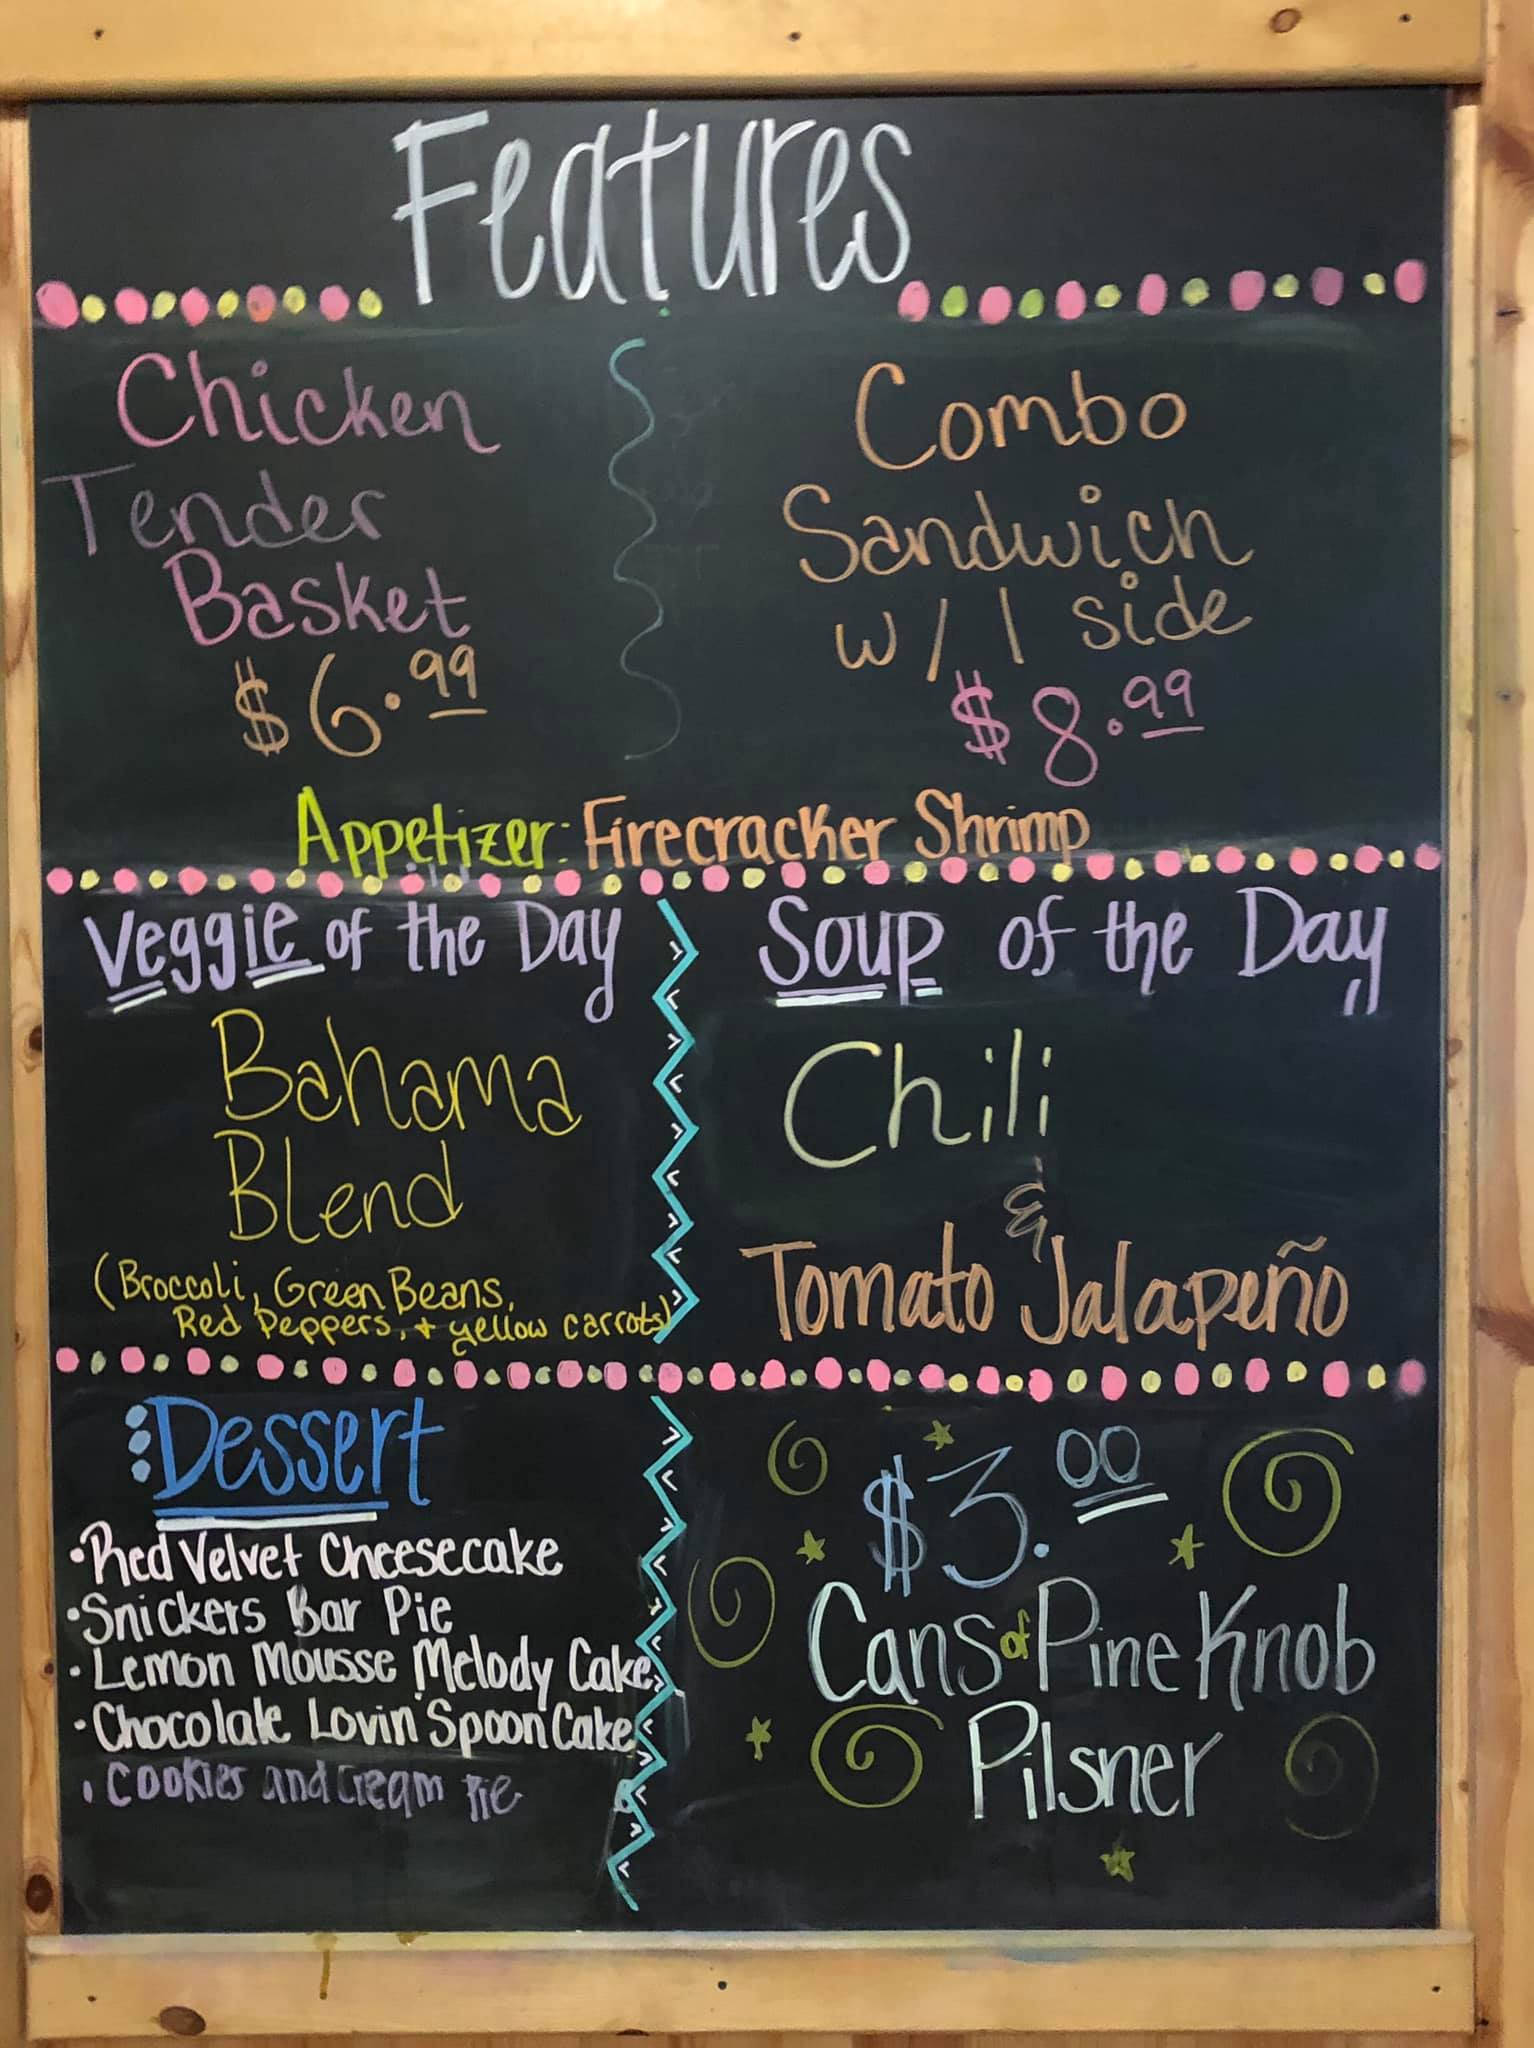 Features
Chicken
Tender
Basket
$6.99
Combo
Sandwich
w/ 1 side
$8.99
Appetizer: Firecracker Shrimp
Veggie of the Day
Bahama
Blend
(Broccoli, Green Beans,
Red Peppers, + yellow carrots)
Soup of the Day
Chili
&
Tomato Jalapeño
Dessert
• Red Velvet Cheesecake
• Snickers Bar Pie
• Lemon Mousse Melody Cake
• Chocolate Lovin' Spoon Cake
• Cookies and Cream Pie
$3.00
Cans of Pine Knob
Pilsner